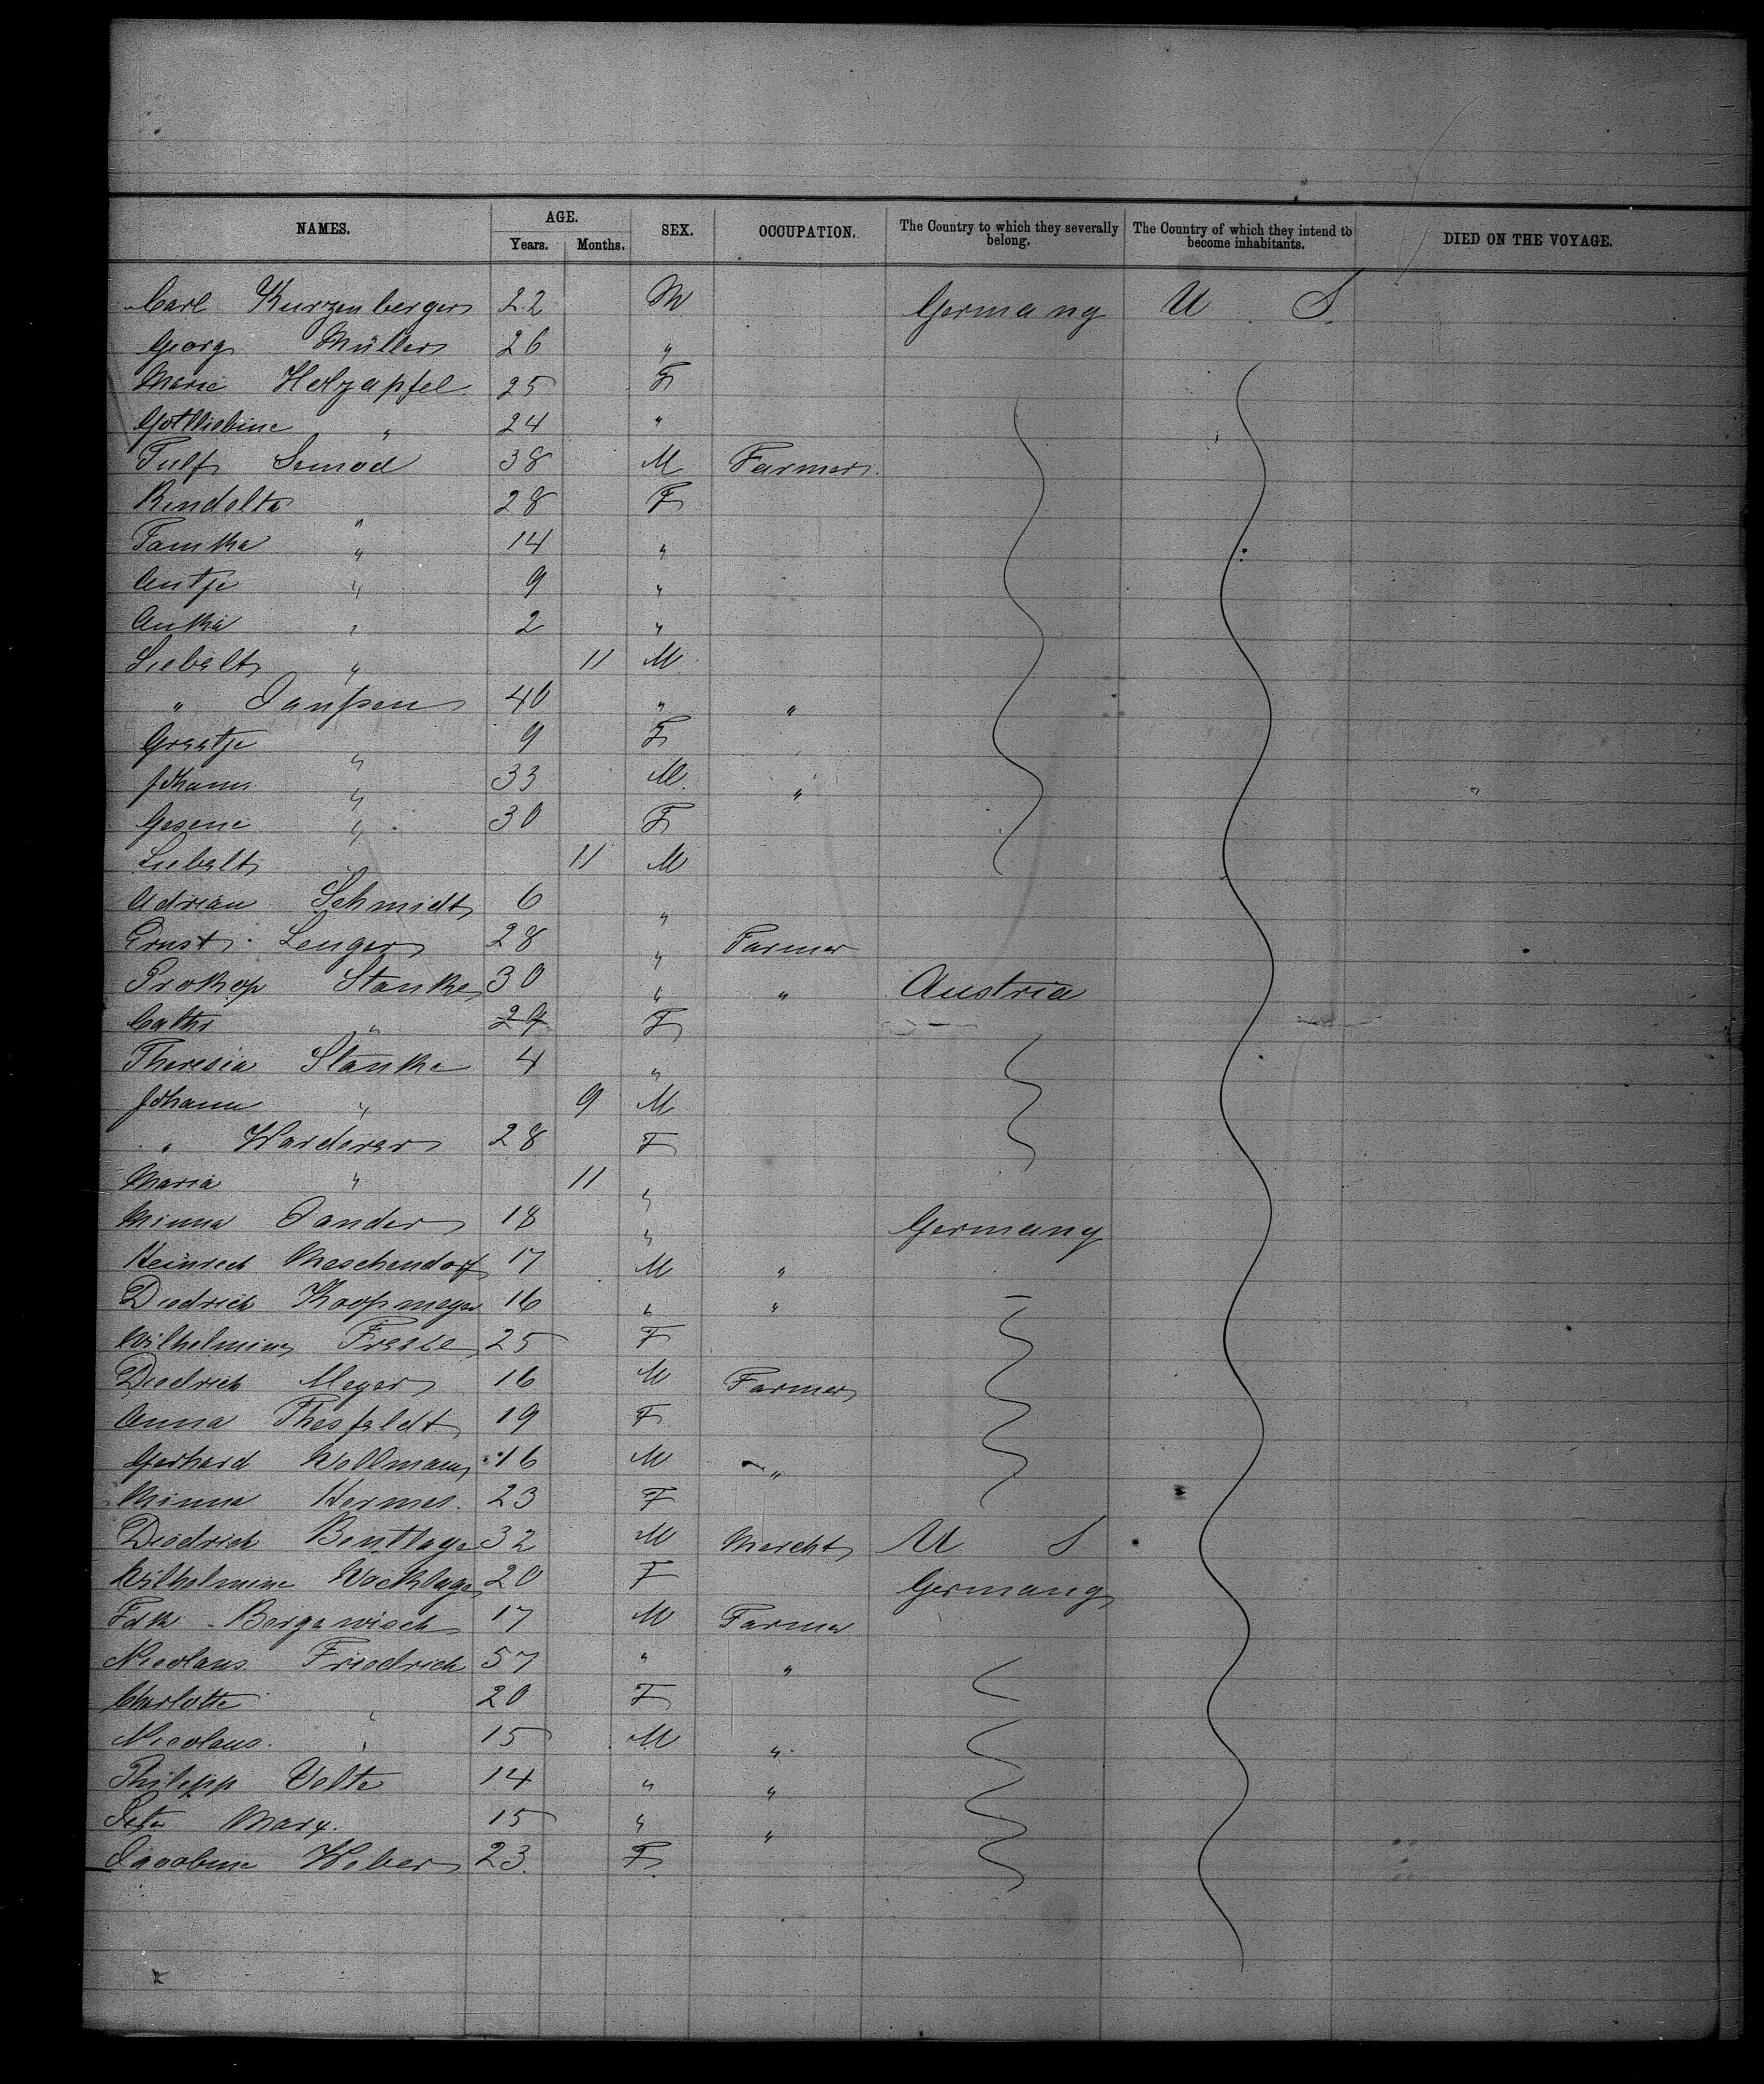 NAMES. AGE. SEX. OCCUPATION. The Country to which they severally belong. The Country of which they intend to become inhabitants. DIED ON THE VOYAGE.
Years. Months.
Carl Kurzenberger 22 M Germany U S
Georg Müller 26 "
Marie Holzapfel 25 F
Gottliebine " 24 "
38 M Farmer
28 F
Tamka " 14 "
Antje " 9 "
Anka " 2 "
Siebelt " 11 M
" Janssen 40 " "
Greetje " 9 F
Johann " 33 M "
Gesene " 30 F
Siebelt " 11 M
Adrian Schmidt 6 "
Ernst Lenger 28 " Farmer
Prokop Stanke 30 " " Austria
Cathr " 29 F
Theresia Stanke 4 "
Johann " 9 M
" Warderer 28 F
Maria " 11 "
Minna Sander 18 " Germany
Heinrich Meschendorf 17 M "
Diedrich Koopmeyer 16 " "
Wilhelmine Frese 25 F
Diedrich Meyer 16 M Farmer
Anna Thesfeldt 19 F
Gerhard Wollmann 16 M "
Minna Hermes. 23 F
Diedrich Bentlage 32 M Mercht U S
Wilhelmine 20 F Germany
Fdk Bergewisch 17 M Farmer
Nicolaus Friedrich 57 " "
Charlotte " 20 F
Nicolaus " 15 M "
Philipp Volte 14 " "
Peter Marx. 15 " "
Jacobine Weber 23 F